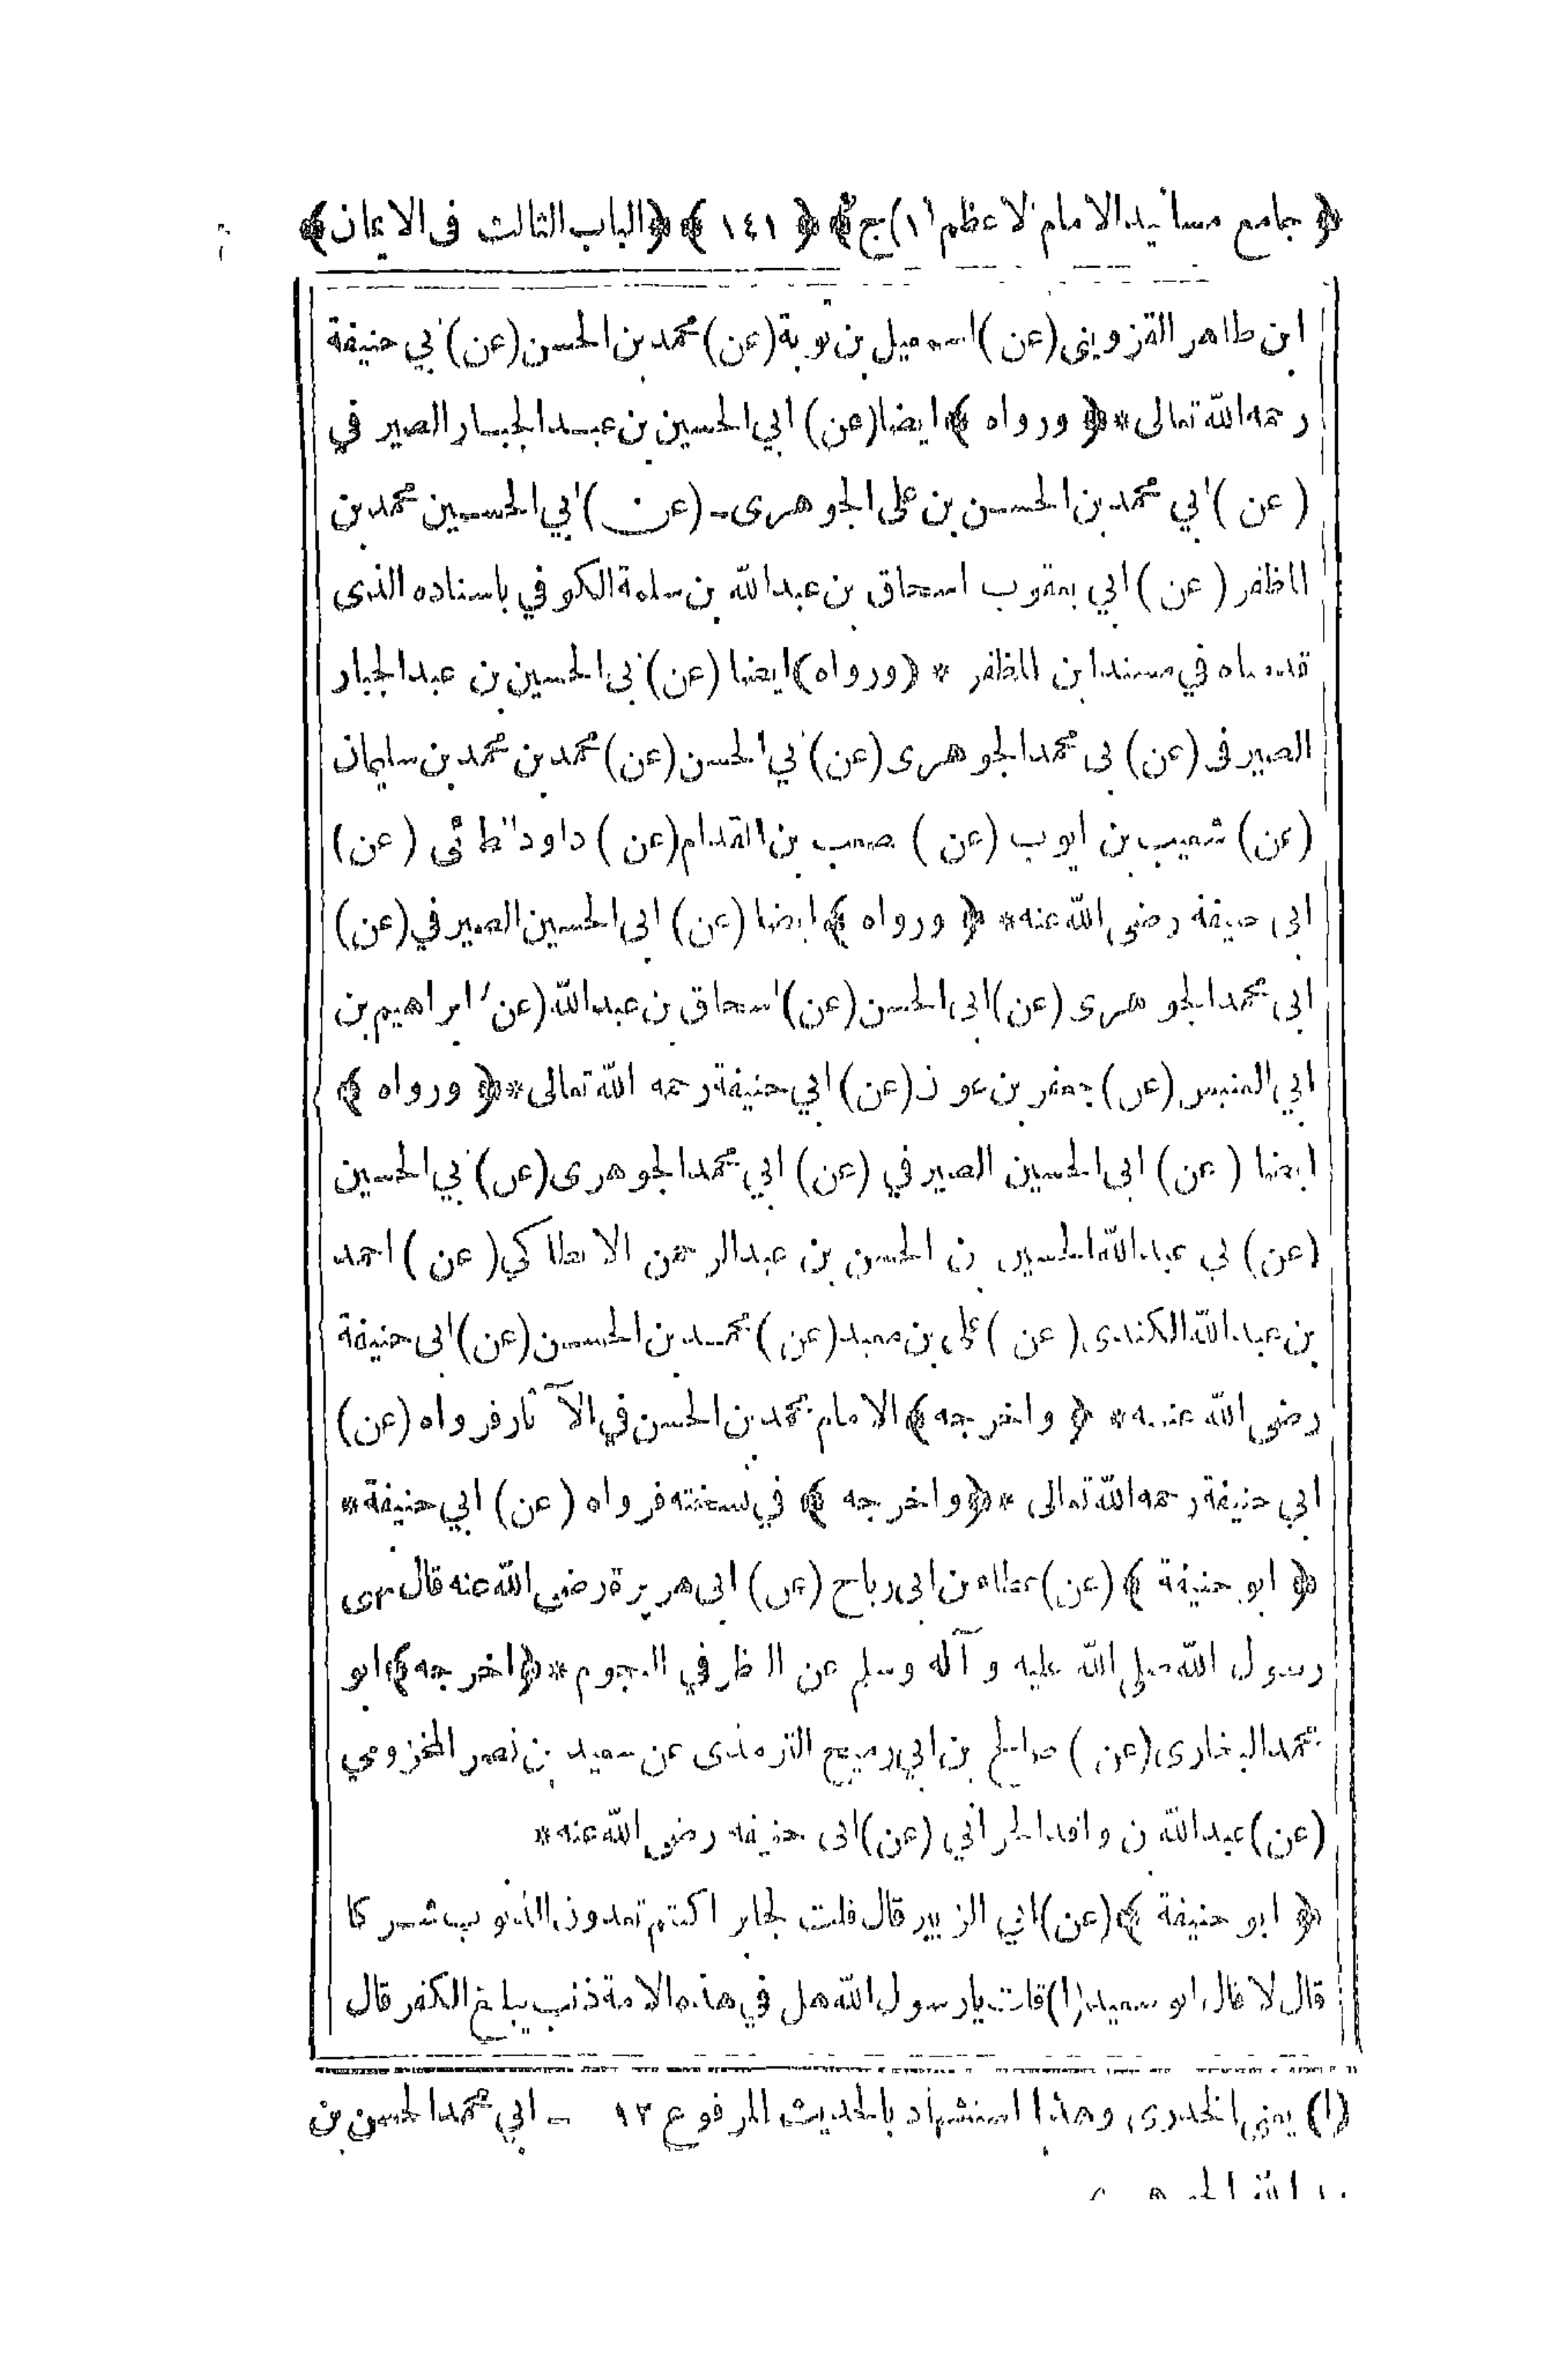 ﴿ جامع مسانيد الامام الاعظم (١) ج ﴾ ﴿ ١٤١ ﴾ ﴿ الباب الثالث فى الايمان ﴾
ابن طاهر القزوينى (عن) اسمعيل بن توبة (عن) محمد بن الحسن (عن) ابي حنيفة
رحمه الله تعالى * ﴿ ورواه ﴾ ايضا (عن) ابي الحسين بن عبد الجبار الصير في
(عن) ابي محمد بن الحسن بن على الجوهرى ـ (عن) ابي الحسين محمد بن
المظفر (عن) ابي يعقوب اسحاق بن عبد الله بن سلمة الكوفي باسناده الذى
قدمناه في مسند ابن المظفر * (ورواه) ايضا (عن) ابى الحسين بن عبد الجبار
الصير فى (عن) ابى محمد الجوهرى (عن) ابي الحسن (عن) محمد بن محمد بن سليمان
(عن) شعيب بن ايوب (عن) مصعب بن المقدام (عن) داود الطائى (عن)
ابى حنيفة رضى الله عنه * ﴿ ورواه ﴾ ايضا (عن) ابى الحسين الصير في (عن)
ابى محمد الجوهرى (عن) ابى الحسن (عن) اسحاق بن عبد الله (عن) ابراهيم بن
ابي العنبس (عن) جعفر بن عون (عن) ابي حنيفة رحمه الله تعالى * ﴿ ورواه ﴾
ايضا (عن) ابى الحسين الصير في (عن) ابي محمد الجوهرى (عن) ابي الحسين
(عن) ابي عبد الله الحسين بن الحسن بن عبد الرحمن الانطاكي (عن) احمد
بن عبد الله الكندى (عن) على بن معبد (عن) محمد بن الحسن (عن) ابى حنيفة
رضى الله عنه * ﴿ واخرجه ﴾ الامام محمد بن الحسن في الآثار فرواه (عن)
ابي حنيفة رحمه الله تعالى * ﴿ واخرجه ﴾ في نسخته فرواه (عن) ابي حنيفة *
﴿ ابو حنيفة ﴾ (عن) عطاء بن ابى رباح (عن) ابى هريرة رضى الله عنه قال نهى
رسول الله صلى الله عليه و آله وسلم عن النظر في النجوم * ﴿ اخرجه ﴾ ابو
محمد البخارى (عن) صالح بن ابي رميح الترمذى عن سعيد بن نصر المخزومي
(عن) عبد الله بن واقد الحراني (عن) ابى حنيفه رضى الله عنه *
﴿ ابو حنيفة ﴾ (عن) ابي الزبير قال قلت لجابر اكنتم تعدون الذنوب شركا
قال لا قال ابو سعيد (١) قلت يارسول الله هل في هذه الامة ذنب يبلغ الكفر قال
(١) يعنى الخدرى وهذا استشهاد بالحديث المرفوع ١٢ ـ ابي محمد الحسن بن